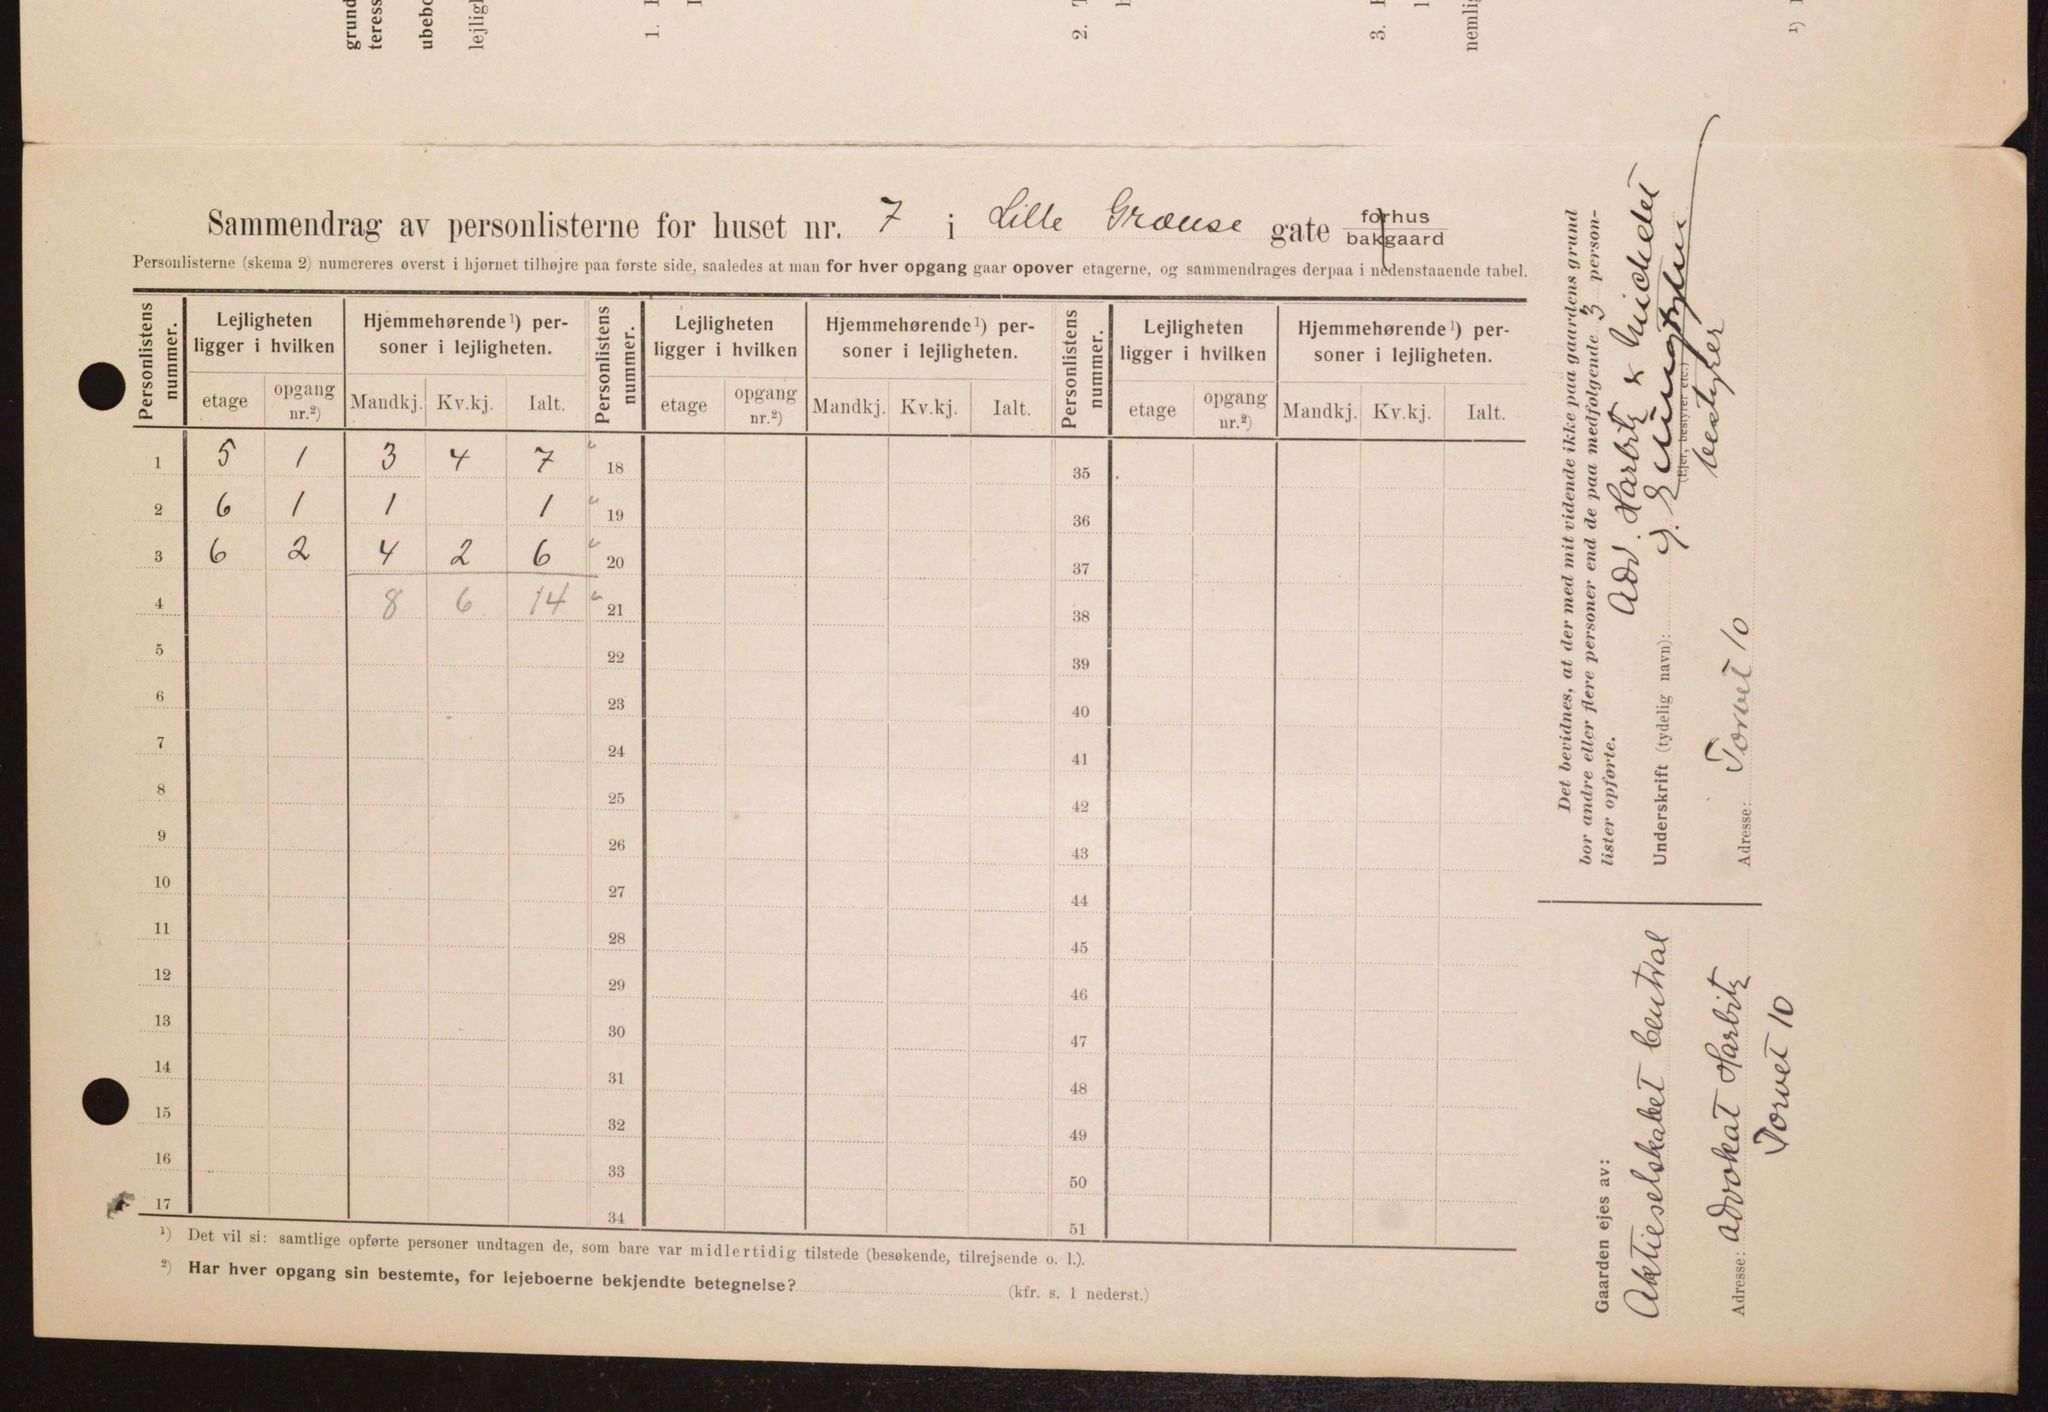 grund
teress
ubebo
lejligh
1.
2.
3.
nemlig
¹)
Sammendrag av personlisterne for huset nr. 7 i Lille Grænse gate forhus
bakgaard
Personlisterne (skema 2) numereres øverst i hjørnet tilhøjre paa første side, saaledes at man for hver opgang gaar opover etagerne, og sammendrages derpaa i nedenstaaende tabel.
Personlistens nummer. Lejligheten ligger i hvilken Hjemmehørende¹) personer i lejligheten. Personlistens nummer. Lejligheten ligger i hvilken Hjemmehørende¹) personer i lejligheten. Personlistens nummer. Lejligheten ligger i hvilken Hjemmehørende¹) personer i lejligheten.
etage opgang nr.²) Mandkj. Kv.kj. Ialt. etage opgang nr.²) Mandkj. Kv.kj. Ialt. etage opgang nr.²) Mandkj. Kv.kj. Ialt.
1 5 1 3 4 7 18 35
2 6 1 1 1 19 36
3 6 2 4 2 6 20 37
4 8 6 14 21 38
5 22 39
6 23 40
7 24 41
8 25 42
9 26 43
10 27 44
11 28 45
12 29 46
13 30 47
14 31 48
15 32 49
16 33 50
17 34 51
¹) Det vil si: samtlige opførte personer undtagen de, som bare var midlertidig tilstede (besøkende, tilrejsende o. l.).
²) Har hver opgang sin bestemte, for lejeboerne bekjendte betegnelse? (kfr. s. 1 nederst.)
Det bevidnes, at der med mit vidende ikke paa gaardens grund
bor andre eller flere personer end de paa medfølgende 3 person-
lister opførte.
Adv. Harbitz & Michelet
Underskrift (tydelig navn):
(Ejer, bestyrer etc.)
bestyrer
Adresse: Torvet 10
Gaarden ejes av:
Aktieselskabet Central
Adresse: Advokat Harbitz
Torvet 10